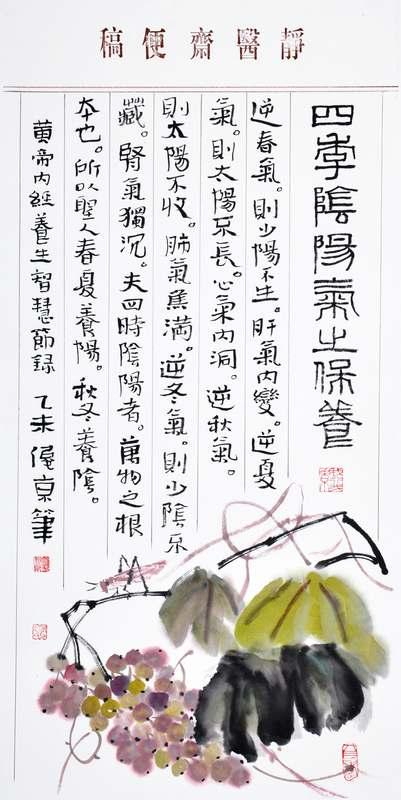 靜醫齋便稿
四季陰陽氣之保養
逆春氣。則少陽不生。肝氣內變。逆夏
氣。則太陽不長。心氣內洞。逆秋氣。
則太陽不收。肺氣焦滿。逆冬氣。則少陰不
藏。腎氣獨沉。夫四時陰陽者。萬物之根
本也。所以聖人春夏養陽。秋冬養陰。
黃帝內經養生智慧節錄 乙未 京筆